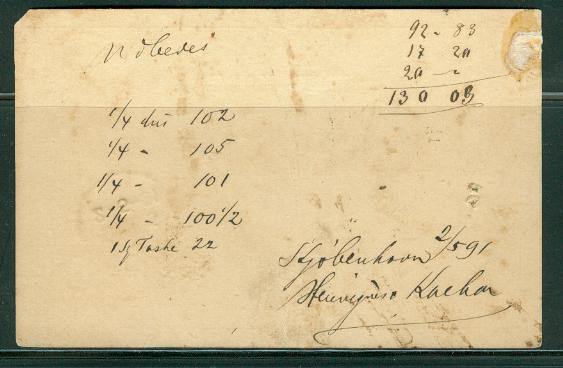 92 - 83
17 20
20 -
130 03
Udbedes
1/4 dus 102
1/4 - 105
1/4 - 101
1/4 - 100 1/2
1 Taske 22
Kjöbenhavn 2/5 91